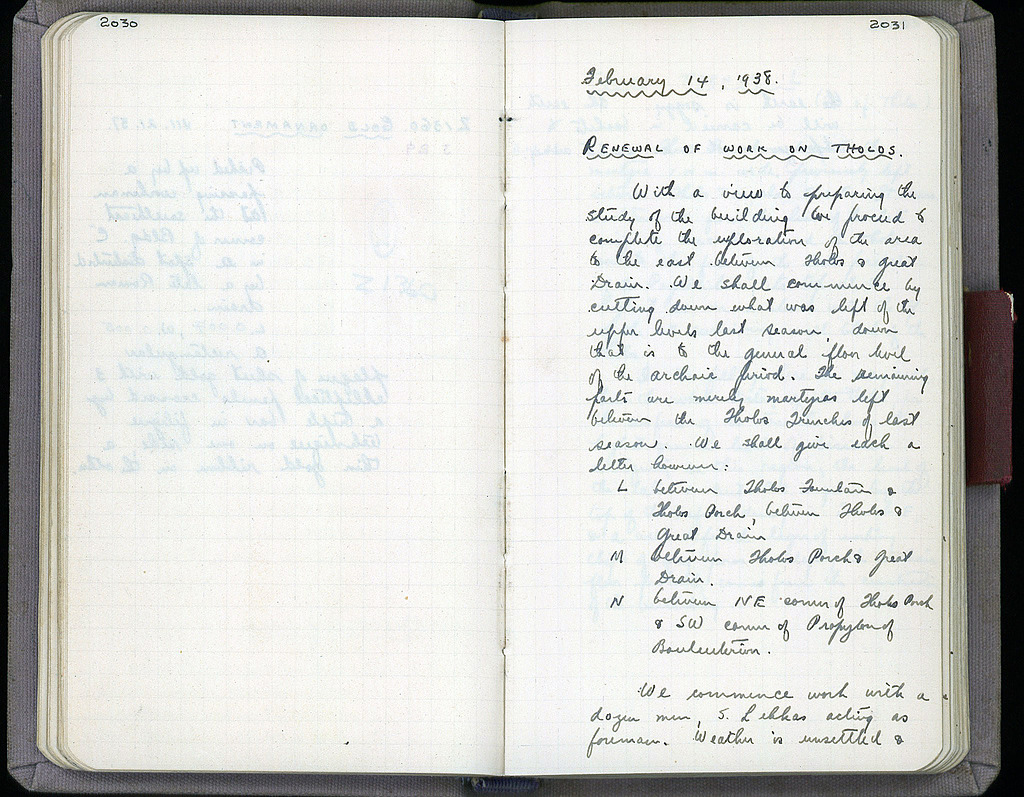 2030
2031
February 14, 1938.
RENEWAL OF WORK ON THOLOS.
With a view to preparing the
study of the building we proceed to
complete the exploration of the area
to the east between Tholos & great
Drain. We shall commence by
cutting down what was left of the
upper levels last season, down
that is to the general floor level
of the archaic period. The remaining
parts are merely martyras left
between the Tholos Trenches of last
season. We shall give each a
letter however:
L between Tholos Fountain &
Tholos Porch, between Tholos &
Great Drain
M between Tholos Porch & Great
Drain.
N between NE corner of Tholos Porch
& SW corner of Propylon of
Bouleuterion.
We commence work with a
dozen men, S. Lekkas acting as
foreman. Weather is unsettled &